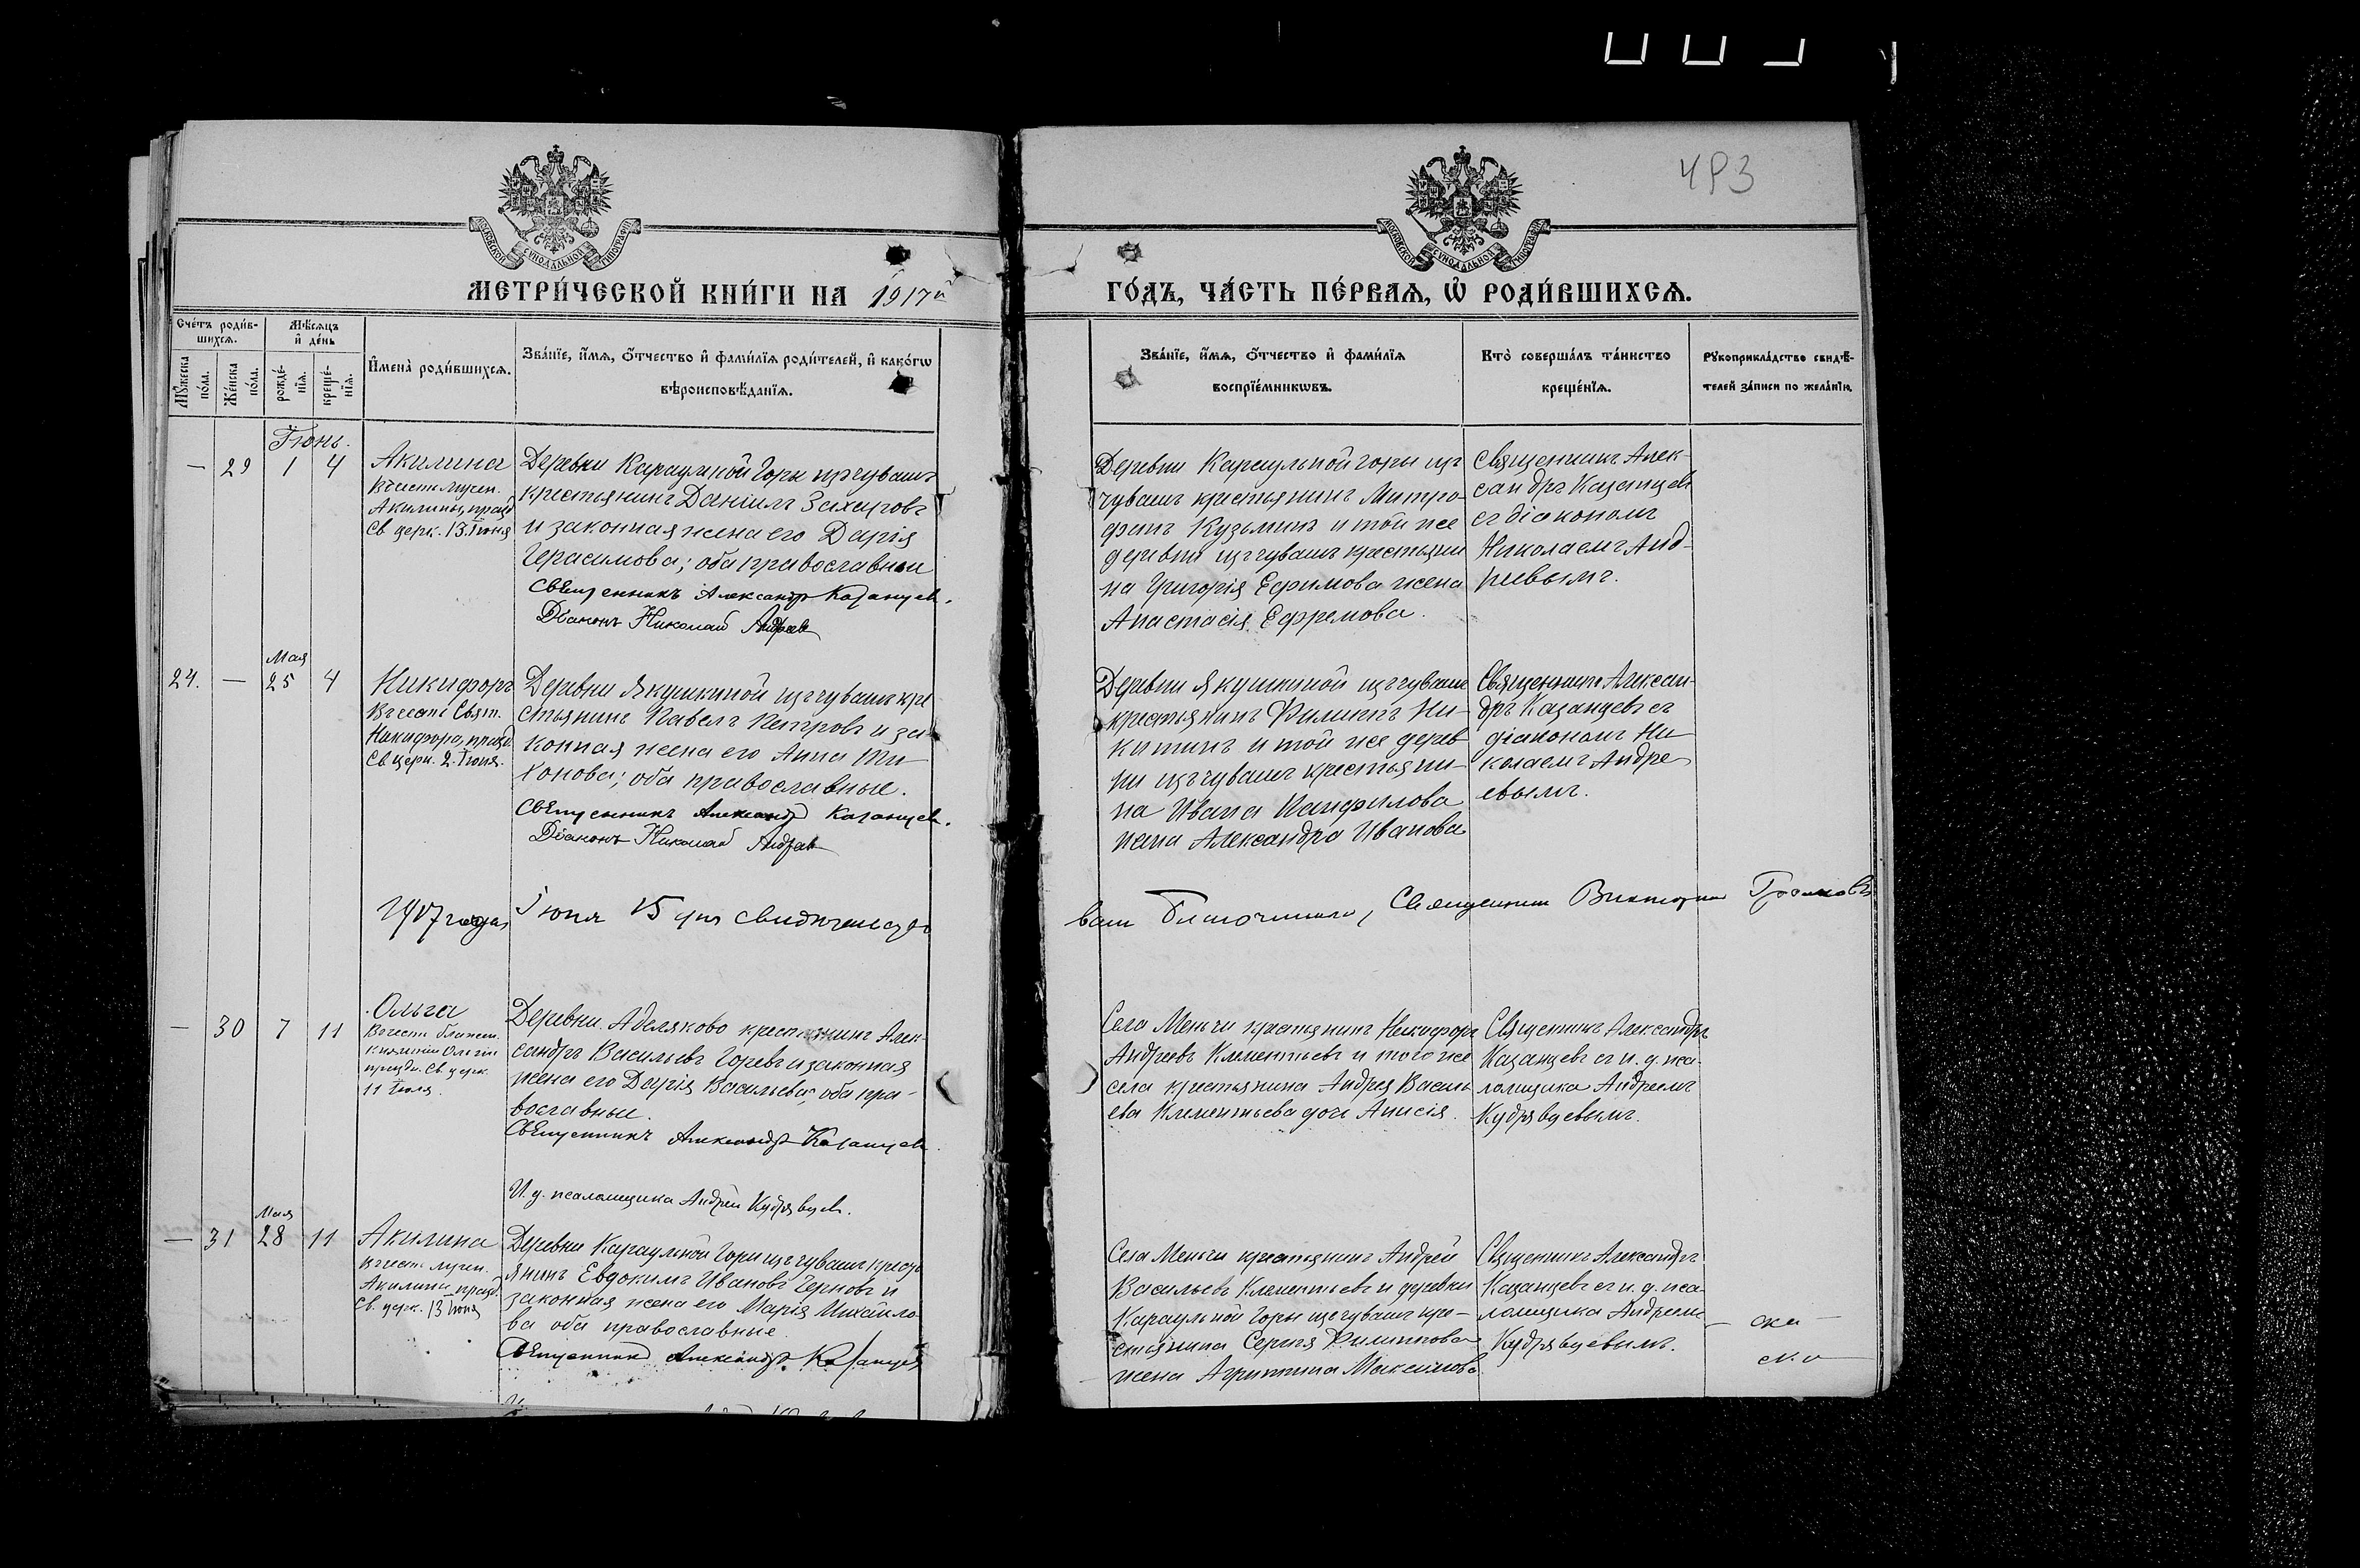 ЧР3
МОСКОВСКОЙ СѴНОДАЛЬНОЙ ТИПОГРАФІИ
МОСКОВСКОЙ СѴНОДАЛЬНОЙ ТИПОГРАФІИ
МЕТРИ́ЧЕСКОЙ КНИ́ГИ НА 1917й
ГО́ДЪ, ЧА́СТЬ ПЕ́РВАѦ, Ѡ҆ РОДИ́ВШИХСѦ.
Сче́тъ роди́в-
шихсѧ.
Мѣ́сѧцъ
и҆ де́нь
Мꙋжеска
по́ла.
Же́нска
по́ла.
рожде́-
нїѧ.
креще́-
нїѧ.
И҆мена̀ роди́вшихсѧ.
Зва́нїе, и҆́мѧ, ѻ҆́тчество и҆ фами́лїѧ роди́телей, и҆ како́гѡ
вѣроисповѣ́данїѧ.
Зва́нїе, и҆́мѧ, ѻ҆́тчество и҆ фами́лїѧ
воспрїе́мникѡвъ.
Кто̀ соверша́лъ та́инство
креще́нїѧ.
Рꙋкоприкла́дство свидѣ́-
телей за́писи по жела́нїю.
Іюнь.
— 29 1 4
Акилина
Въ честь мучен.
Акилины, празд.
Св. церк. 13 Іюня
Деревни Караульной Горы из чувашъ
крестьянинъ Даніилъ Захаровъ
и законная жена его Дарія
Герасимова; оба православные
Священникъ Александр Казанцев.
Діаконъ Николай Андреев
Деревни Караульной горы из
чувашъ крестьянинъ Митро-
фанъ Кузьминъ и той же
деревни изъ чувашъ крестьяни
на Григорія Ефимова жена
Анастасія Ефремова.
Священникъ Алек-
сандръ Казанцев
съ діакономъ
Николаемъ Анд-
реевымъ.
Мая
24. — 25 4
Никифоръ
Въ честь Свят.
Никифора, празд.
Св. церк. 2 Іюня.
Деревни Якушкиной изъ чувашъ кре
стьянинъ Павелъ Петровъ и за-
конная жена его Анна Ти-
хонова; оба православные.
Священникъ Александр Казанцев.
Діаконъ Николай Андреев
Деревни Якушкиной изъ чуваш
крестьянинъ Филиппъ Ни-
китинъ и той же дерев
ни изъ чувашъ крестьяни-
на Ивана Панфилова
жена Александра Иванова
Священникъ Алексан-
дръ Казанцевъ съ
діакономъ Ни
колаемъ Андре
евымъ.
1917 года Іюня 15 дня свидѣтельство
валъ Благочинный, Священник Викторин
— 30 7 11
Ольга
Въ честь блажен.
княгини Ольги
празд. Св. церк.
11 Іюля.
Деревни Аделяково крестьянинъ Алек-
сандръ Васильевъ Горевъ и законная
жена его Дарія Васильева; оба пра-
вославные.
Священникъ Александр Казанцев.
И. д. псаломщика Андрей Кудрявцев.
Села Меньчи крестьянинъ Никифоръ
Андреевъ Клементьевъ и того же
села крестьянина Андрея Василь
ева Клементьева дочь Анисія.
Священникъ Александръ
Казанцевъ съ и. д. пса-
ломщика Андреемъ
Кудрявцевымъ.
Мая
— 31 28 11
Акилина
Въ честь мучен.
Акилины празд.
Св. церк. 13 Іюня
Деревни Караульной Горы изъ чувашъ кресть
янинъ Евдокимъ Ивановъ Черновъ и
законная жена его Марія Михайло
ва оба православные.
Священник Александр Казанцев
Села Меньчи крестьянинъ Андрей
Васильевъ Клементьевъ и деревни
Караульной Горы изъ чувашъ кре-
стьянина Сергія Филиппова
жена Агриппина Максимова
Священникъ Александръ
Казанцевъ съ и. д. пса-
ломщика Андреем
Кудрявцевымъ.